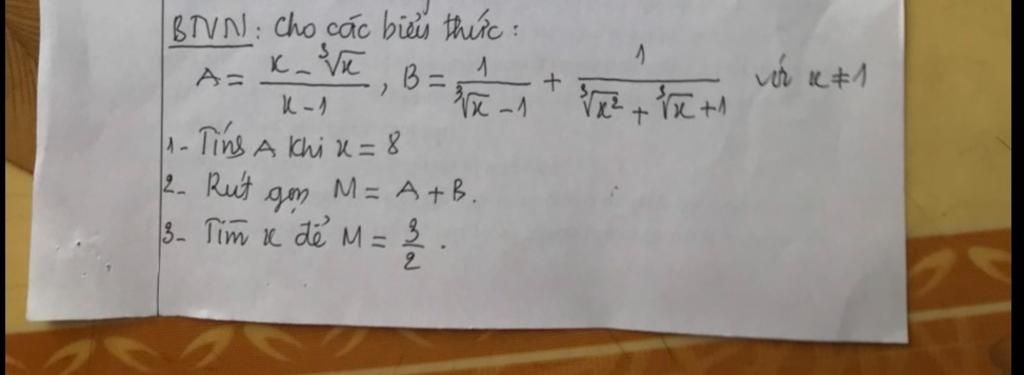 BTVN: Cho các biểu thức:
A = (x - ∛x)/(x - 1), B = 1/(∛x - 1) + 1/(∛x² + ∛x + 1) với x ≠ 1
1- Tính A khi x = 8
2- Rút gọn M = A + B.
3- Tìm x để M = 3/2.